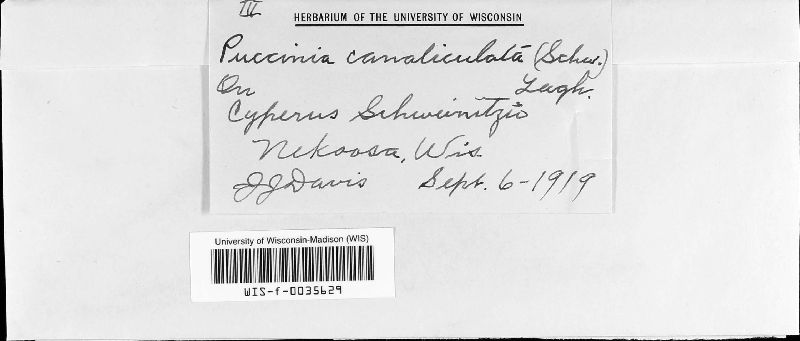 IV
HERBARIUM OF THE UNIVERSITY OF WISCONSIN
Puccinia canaliculata (Schw.)
On Lagh.
Cyperus Schweinitzii
Nekoosa, Wis.
JJ Davis Sept. 6-1919
University of Wisconsin-Madison (WIS)
WIS-f-0035629